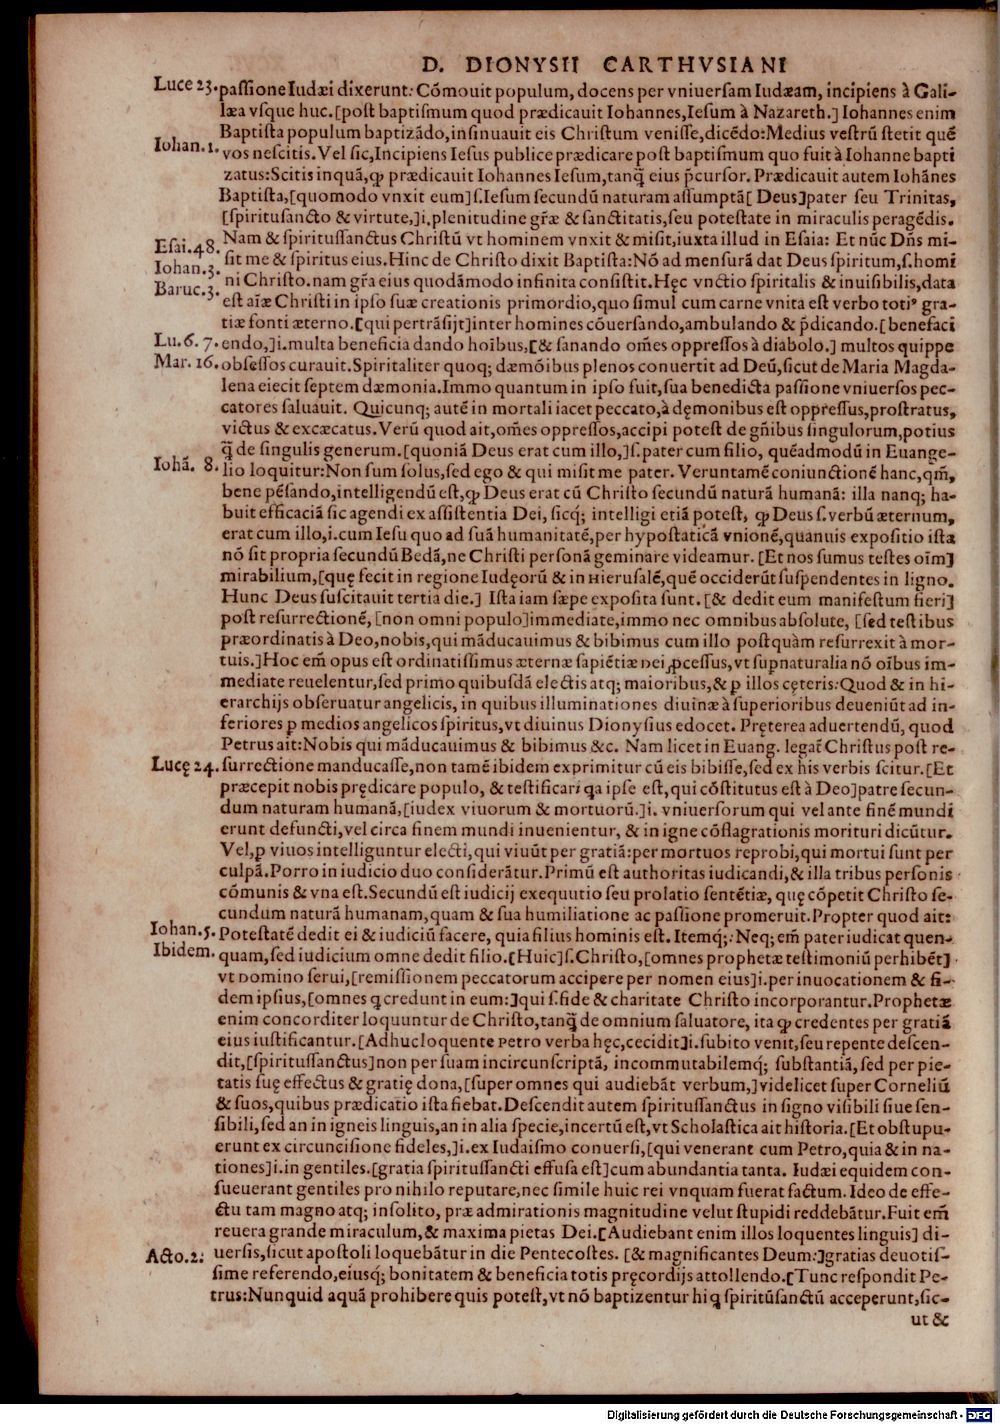 D. DIONYSII CARTHVSIANI
Luce 23. passione Iudæi dixerunt: Cõmouit populum, docens per vniuersam Iudæam, incipiens à Gali-
læa vsque huc. [post baptismum quod prædicauit Iohannes, Iesum à Nazareth.] Iohannes enim
Baptista populum baptizãdo, insinuauit eis Christum venisse, dicẽdo: Medius vestrũ stetit quẽ
Iohan. 1. vos nescitis. Vel sic, Incipiens Iesus publice prædicare post baptismum quo fuit à Iohanne bapti
zatus: Scitis inquã, ꝙ prædicauit Iohannes Iesum, tanq̃ eius p̃cursor. Prædicauit autem Iohãnes
Baptista, [quomodo vnxit eum] s. Iesum secundũ naturam assumptã [ Deus] pater seu Trinitas,
[spiritusancto & virtute,] i. plenitudine gr̃æ & sanctitatis, seu potestate in miraculis peragẽdis.
Esai. 48. Nam & spiritussanctus Christũ vt hominem vnxit & misit, iuxta illud in Esaia: Et nũc Dñs mi-
Iohan. 3. sit me & spiritus eius. Hinc de Christo dixit Baptista: Nõ ad mensurã dat Deus spiritum, s. homi
Baruc. 3. ni Christo. nam gr̃a eius quodãmodo infinita consistit. Hęc vnctio spiritalis & inuisibilis, data
est aĩæ Christi in ipso suæ creationis primordio, quo simul cum carne vnita est verbo totiꝰ gra-
tiæ fonti æterno. [qui pertrãsijt] inter homines cõuersando, ambulando & p̃dicando. [benefaci
Lu. 6. 7. endo,] i. multa beneficia dando hoĩbus, [& sanando om̃es oppressos à diabolo.] multos quippe
Mar. 16. obsessos curauit. Spiritaliter quoq; dæmõibus plenos conuertit ad Deũ, sicut de Maria Magda-
lena eiecit septem dæmonia. Immo quantum in ipso fuit, sua benedicta passione vniuersos pec-
catores saluauit. Quicunq; autẽ in mortali iacet peccato, à dęmonibus est oppressus, prostratus,
victus & excæcatus. Verũ quod ait, om̃es oppressos, accipi potest de gñibus singulorum, potius
q̃ de singulis generum. [quoniã Deus erat cum illo,] s. pater cum filio, quẽadmodũ in Euange-
Iohã. 8. lio loquitur: Non sum solus, sed ego & qui misit me pater. Veruntamẽ coniunctionẽ hanc, qm̃,
bene pẽsando, intelligendũ est, ꝙ Deus erat cũ Christo secundũ naturã humanã: illa nanq; ha-
buit efficaciã sic agendi ex assistentia Dei, sicq́; intelligi etiã potest, ꝙ Deus s. verbũ æternum,
erat cum illo, i. cum Iesu quo ad suã humanitatẽ, per hypostaticã vnionẽ, quanuis expositio ista
nõ sit propria secundũ Bedã, ne Christi personã geminare videamur. [Et nos sumus testes oĩm]
mirabilium, [quę fecit in regione Iudęorũ & in Hierusalẽ, quẽ occiderũt suspendentes in ligno.
Hunc Deus suscitauit tertia die.] Ista iam sæpe exposita sunt. [& dedit eum manifestum fieri]
post resurrectionẽ, [non omni populo] immediate, immo nec omnibus absolute, [sed testibus
præordinatis à Deo, nobis, qui mãducauimus & bibimus cum illo postquàm resurrexit à mor-
tuis.] Hoc em̃ opus est ordinatissimus æternæ sapiẽtiæ Dei ꝓcessus, vt supnaturalia nõ oĩbus im-
mediate reuelentur, sed primo quibusdã electis atq; maioribus, & ꝑ illos cęteris: Quod & in hi-
erarchijs obseruatur angelicis, in quibus illuminationes diuinæ à superioribus deueniũt ad in-
feriores ꝑ medios angelicos spiritus, vt diuinus Dionysius edocet. Pręterea aduertendũ, quod
Petrus ait: Nobis qui mãducauimus & bibimus &c. Nam licet in Euang. legat̃ Christus post re-
Lucę 24. surrectione manducasse, non tamẽ ibidem exprimitur cũ eis bibisse, sed ex his verbis scitur. [Et
præcepit nobis prędicare populo, & testificari qa ipse est, qui cõstitutus est à Deo] patre secun-
dum naturam humanã, [iudex viuorum & mortuorũ.] i. vniuersorum qui vel ante finẽ mundi
erunt defuncti, vel circa finem mundi inuenientur, & in igne cõflagrationis morituri dicũtur.
Vel, ꝑ viuos intelliguntur electi, qui viuũt per gratiã: per mortuos reprobi, qui mortui sunt per
culpã. Porro in iudicio duo considerãtur. Primũ est authoritas iudicandi, & illa tribus personis
cõmunis & vna est. Secundũ est iudicij exequutio seu prolatio sentẽtiæ, quę cõpetit Christo se-
cundum naturã humanam, quam & sua humiliatione ac passione promeruit. Propter quod ait:
Iohan. 5. Potestatẽ dedit ei & iudiciũ facere, quia filius hominis est. Itemq́;: Neq; em̃ pater iudicat quen-
Ibidem. quam, sed iudicium omne dedit filio. [Huic] s. Christo, [omnes prophetæ testimoniũ perhibẽt]
vt Domino serui, [remissionem peccatorum accipere per nomen eius] i. per inuocationem & fi-
dem ipsius, [omnes q credunt in eum:] qui s. fide & charitate Christo incorporantur. Prophetæ
enim concorditer loquuntur de Christo, tanq̃ de omnium saluatore, ita ꝙ credentes per gratiã
eius iustificantur. [Adhuc loquente Petro verba hęc, cecidit] i. subito venit, seu repente descen-
dit, [spiritussanctus] non per suam incircunscriptã, incommutabilemq́; substantiã, sed per pie-
tatis suę effectus & gratię dona, [super omnes qui audiebãt verbum,] videlicet super Corneliũ
& suos, quibus prædicatio ista fiebat. Descendit autem spiritussanctus in signo visibili siue sen-
sibili, sed an in igneis linguis, an in alia specie, incertũ est, vt Scholastica ait historia. [Et obstupu-
erunt ex circuncisione fideles,] i. ex Iudaismo conuersi, [qui venerant cum Petro, quia & in na-
tiones] i. in gentiles. [gratia spiritussancti effusa est] cum abundantia tanta. Iudæi equidem con-
sueuerant gentiles pro nihilo reputare, nec simile huic rei vnquam fuerat factum. Ideo de effe-
ctu tam magno atq; insolito, præ admirationis magnitudine velut stupidi reddebãtur. Fuit em̃
reuera grande miraculum, & maxima pietas Dei. [Audiebant enim illos loquentes linguis] di-
Acto. 2: uersis, sicut apostoli loquebãtur in die Pentecostes. [& magnificantes Deum:] gratias deuotis-
sime referendo, eiusq́; bonitatem & beneficia totis pręcordijs attollendo. [Tunc respondit Pe-
trus: Nunquid aquã prohibere quis potest, vt nõ baptizentur hi q spiritũsanctũ acceperunt, sic-
ut &
Digitalisierung gefördert durch die Deutsche Forschungsgemeinschaft - DFG